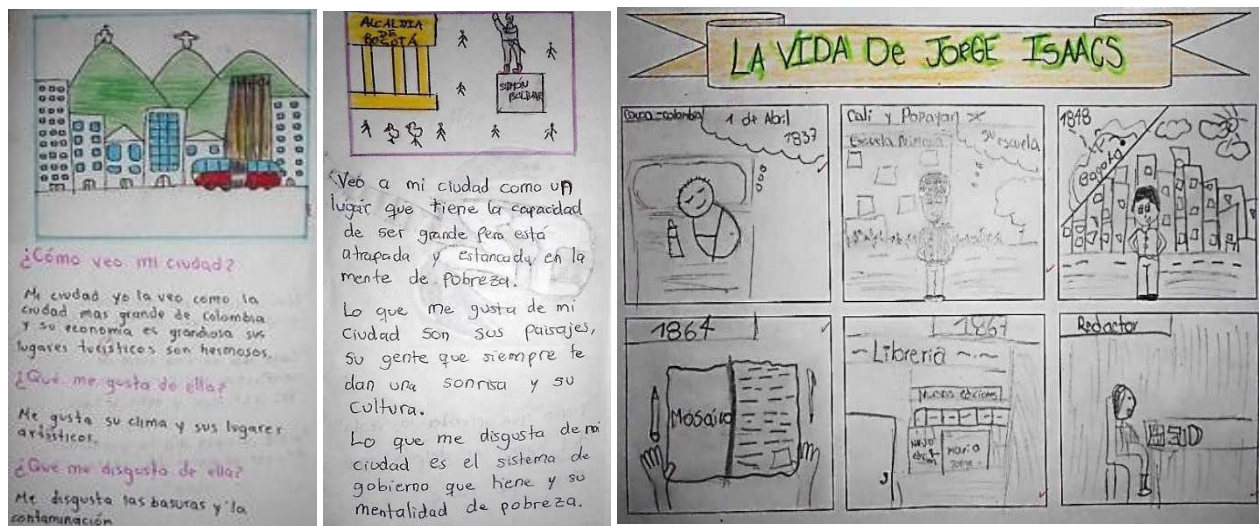 ¿Cómo veo mi ciudad?
Mi ciudad yo la veo como la
ciudad mas grande de Colombia
y su economía es grandiosa sus
lugares turísticos son hermosos.
¿Qué me gusta de ella?
Me gusta su clima y sus lugares
artísticos.
¿Qué me disgusta de ella?
Me disgusta las basuras y la
contaminación
ALCALDIA
DE
BOGOTÁ
SIMÓN
BOLIVAR
Veo a mi ciudad como un
lugar que tiene la capacidad
de ser grande pero está
atrapada y estancada en la
mente de pobreza.
Lo que me gusta de mi
Ciudad son sus paisajes,
su gente que siempre te
dan una sonrisa y su
cultura.
Lo que me disgusta de mi
ciudad es el sistema de
gobierno que tiene y su
mentalidad de pobreza.
LA VIDA De JORGE ISAACS
Cauca-colombia
1 de Abril
1837
Cali y Popayan
Escuela Primaria
su escuela
1848
Bogota
1864
Mosaico
1867
Libreria
Nuevas ediciones
Maria
Jorge
Redactor